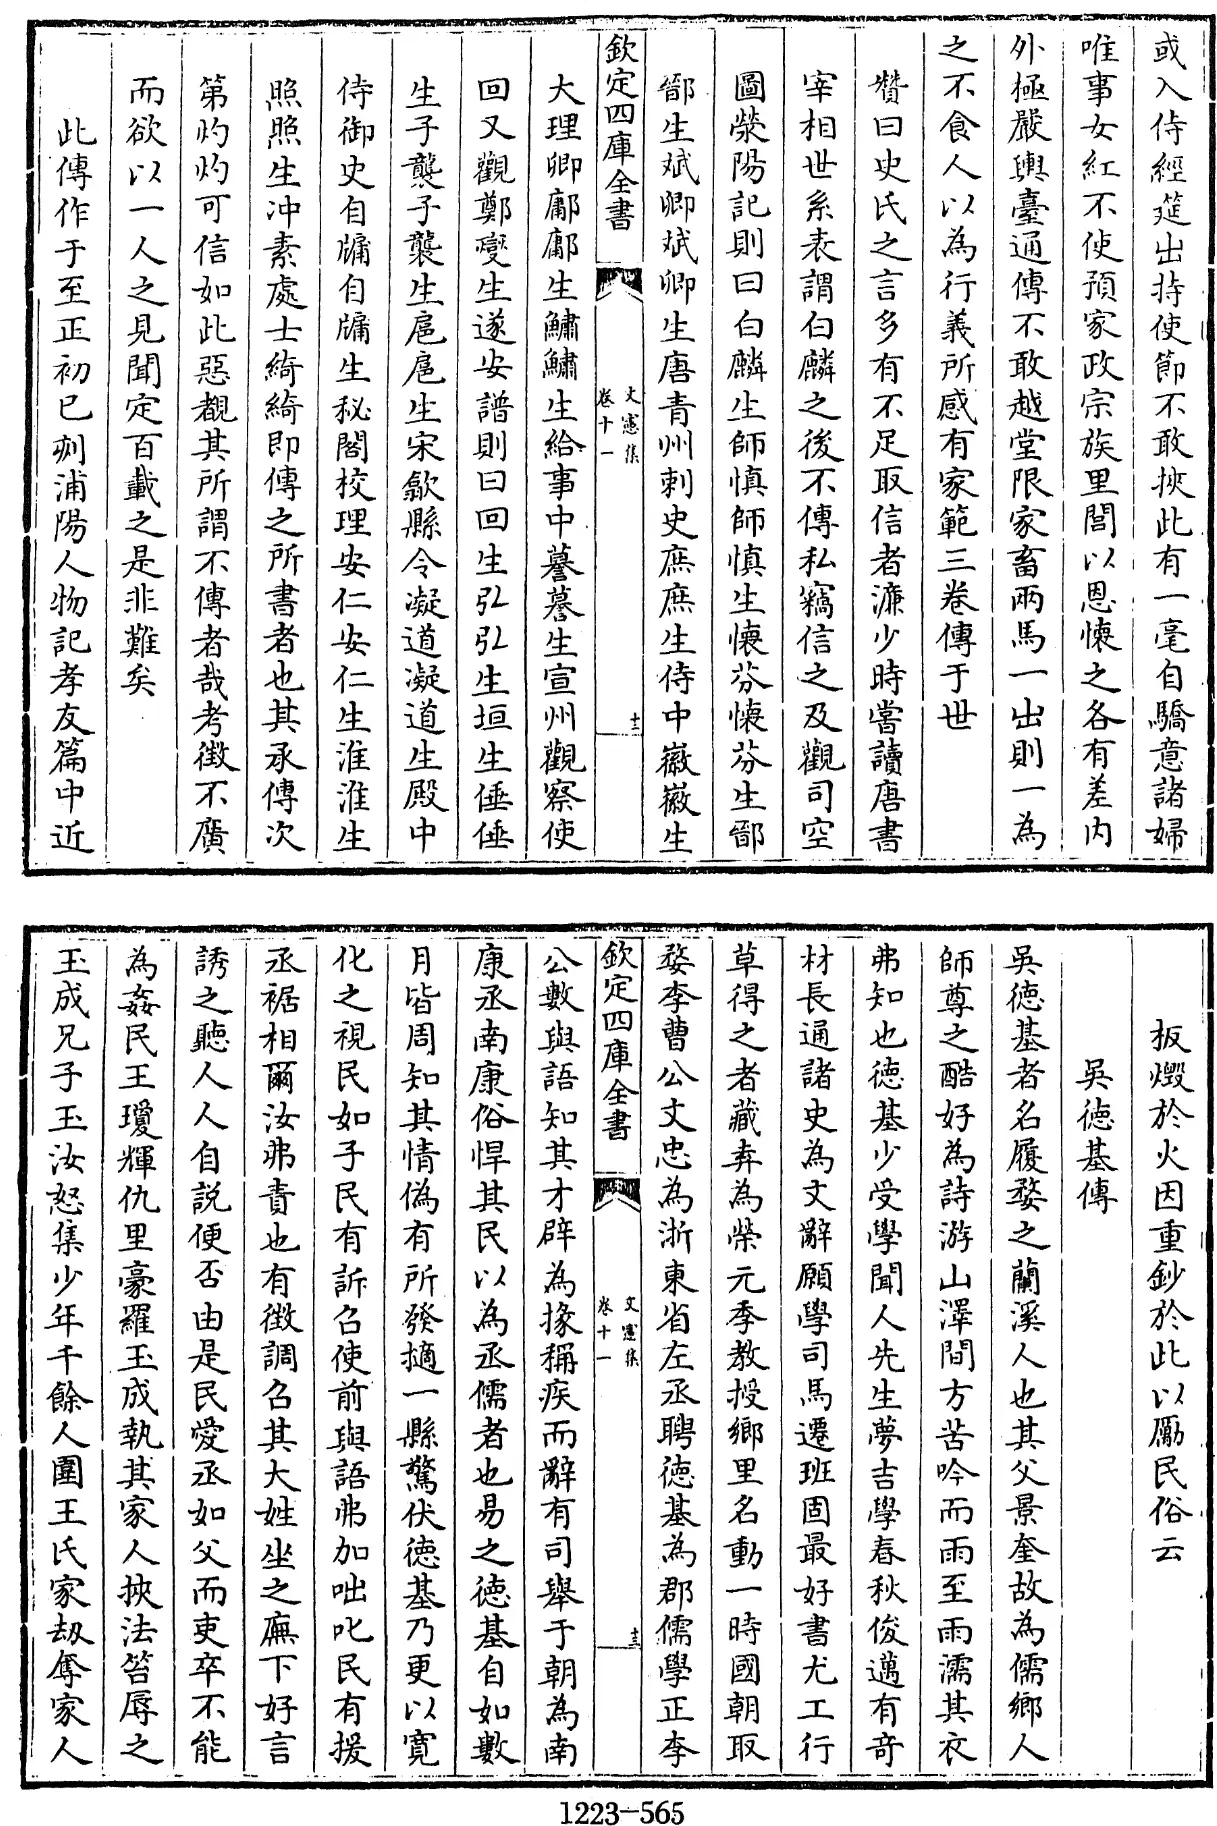 或入侍經筵出持使節不敢挾此有一毫自驕意諸婦
唯事女紅不使預家政宗族里閭以恩懷之各有差内
外極嚴輿臺通傳不敢越堂限家畜兩馬一出則一為
之不食人以為行義所感有家範三卷傳于世
贊曰史氏之言多有不足取信者濂少時嘗讀唐書
宰相世系表謂白麟之後不傳私竊信之及觀司空
圖滎陽記則曰白麟生師慎師慎生懷芬懷芬生鄫
鄫生斌卿斌卿生唐青州刺史庶庶生侍中徽徽生
欽定四庫全書
文憲集
卷十一
十二
大理卿鄘鄘生鱐鱐生給事中謩謩生宣州觀察使
回又觀鄭㷫生遂安譜則曰回生弘弘生垣生倕倕
生子龑子龑生扈扈生宋歙縣令凝道凝道生殿中
侍御史自牖自牖生秘閣校理安仁安仁生淮淮生
照照生冲素處士綺綺即傳之所書者也其承傳次
第灼灼可信如此惡覩其所謂不傳者哉考徴不廣
而欲以一人之見聞定百載之是非難矣
此傳作于至正初已刻浦陽人物記孝友篇中近
板燬於火因重鈔於此以勵民俗云
吳德基傳
吳德基者名履婺之蘭溪人也其父景奎故為儒鄉人
師尊之酷好為詩游山澤間方苦吟而雨至雨濡其衣
弗知也德基少受學聞人先生夢吉學春秋俊邁有奇
材長通諸史為文辭願學司馬遷班固最好書尤工行
草得之者藏弆為榮元季教授鄉里名動一時國朝取
婺李曹公文忠為浙東省左丞聘德基為郡儒學正李
欽定四庫全書
文憲集
卷十一
十三
公數與語知其才辟為掾稱疾而辭有司舉于朝為南
康丞南康俗悍其民以為丞儒者也易之德基自如數
月皆周知其情偽有所發擿一縣驚伏德基乃更以寛
化之視民如子民有訴召使前與語弗加咄叱民有援
丞裾相爾汝弗責也有徴調召其大姓坐之廡下好言
誘之聽人人自説便否由是民愛丞如父而吏卒不能
為姦民王瓊輝仇里豪羅玉成執其家人挾法笞辱之
玉成兄子玉汝怒集少年千餘人圍王氏家刼奪家人
1223-565